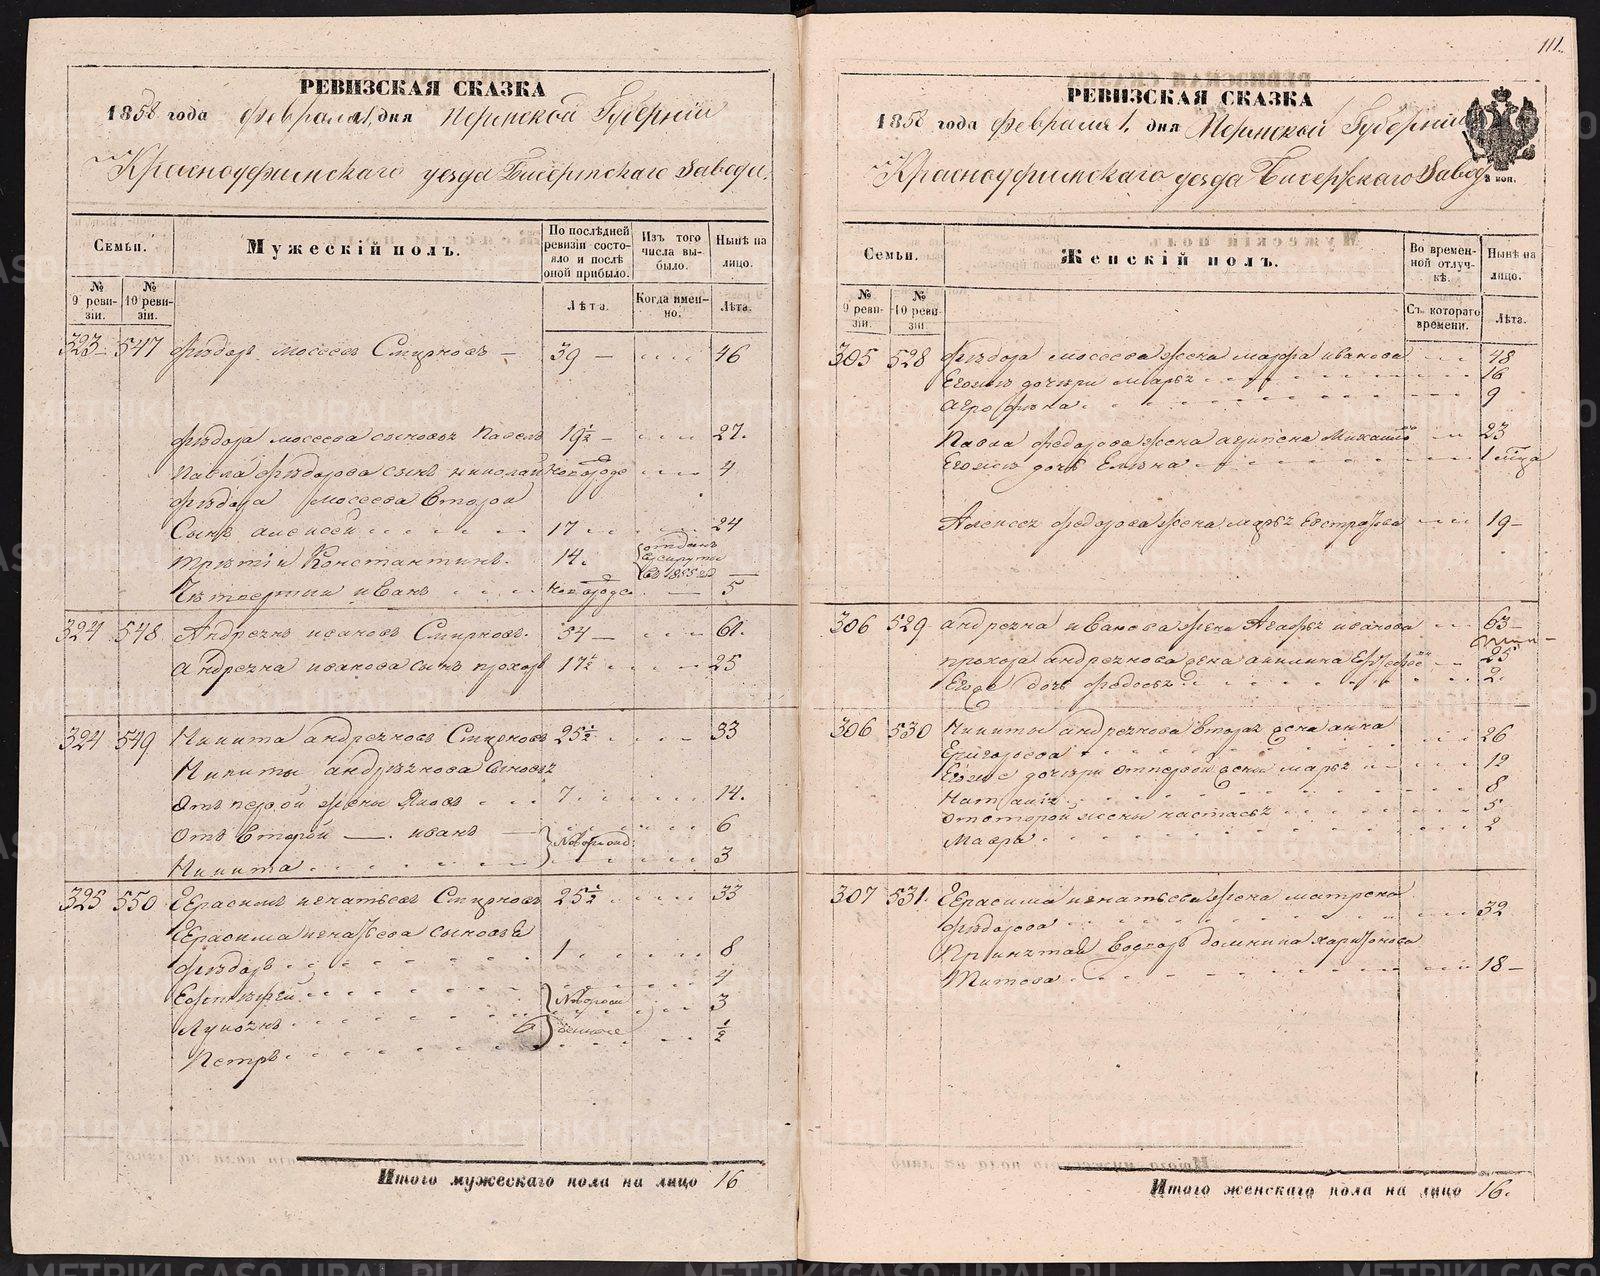 РЕВИЗСКАЯ СКАЗКА
1858 года февраля 1, дня Пермской Губернии
Красноуфимскаго уезда Бисертскаго Завода.
Семьи.
№ 9 ревизіи.
№ 10 ревизіи.
Мужескій полъ.
По послѣдней ревизіи состояло и послѣ оной прибыло.
Изъ того числа выбыло.
Нынѣ на лицо.
Лѣта.
Когда именно.
Лѣта.
323 547 Фѣдоръ Мосеевъ Смирновъ — 39 — 46
Фѣдора Мосеева сыновья Павелъ 19½ — 27.
Павла Фѣдорова сынъ Николай 4
Фѣдора Мосеева второй
Сынъ Алексей 17 24
трѣтій Константинъ. 14. отданъ в рекруты в 1855 г. —
Четвертый Иванъ — 5
324 548 Андреянъ Ивановъ Смирновъ. 54 — 61.
Андреяна Иванова сынъ Прохоръ 17½ 25
324 549 Никита Андреяновъ Смирновъ 25½ 33
Никиты Андрѣянова сыновья
Отъ первой жены Яковъ 7. 14.
Отъ второй —. Иванъ — 6
Никита 3
325 550 Герасимъ Игнатьевъ Смирновъ 25½ 33
Герасима Игнатьева сыновья
Фѣдоръ 1 8
4
Лупоянъ 3
Петръ ½
Итого мужескаго пола на лицо 16
111.
РЕВИЗСКАЯ СКАЗКА
1858 года февраля 1, дня Пермской Губернии
Красноуфимскаго уезда Бисертскаго Завод
Семьи.
№ 9 ревизіи.
№ 10 ревизіи.
Женскій полъ.
Во временной отлучкѣ.
Нынѣ на лицо.
Съ котораго времени.
Лѣта.
305 528 Фѣдора Мосеева жена Марфа Иванова 48
Егожъ дочери Марья 16
Агрофѣна 9
Павла Федорова жена Агрипена Михайло 23
Егожъ дочь Елена 1 мѣсяца
Алексея Федорова жена Марья Евстратова 19 —
306 529 Андреяна Иванова жена Агафья Иванова 63 —
Прохора Андреянова жена Акилина 25
Егоже дочь Федосья 2.
306 530 Никиты Андреянова вторая жена Анна
Григорьева 26
Егоже дочери от первой жены Марья 12
Наталія 8
от второй жены Настасья 5
Мавра 2
307 531. Герасима Игнатьева жена Матрена
Фѣдорова 32
Домнина Харитонова
Титова 18 —
Итого женскаго пола на лицо 16.